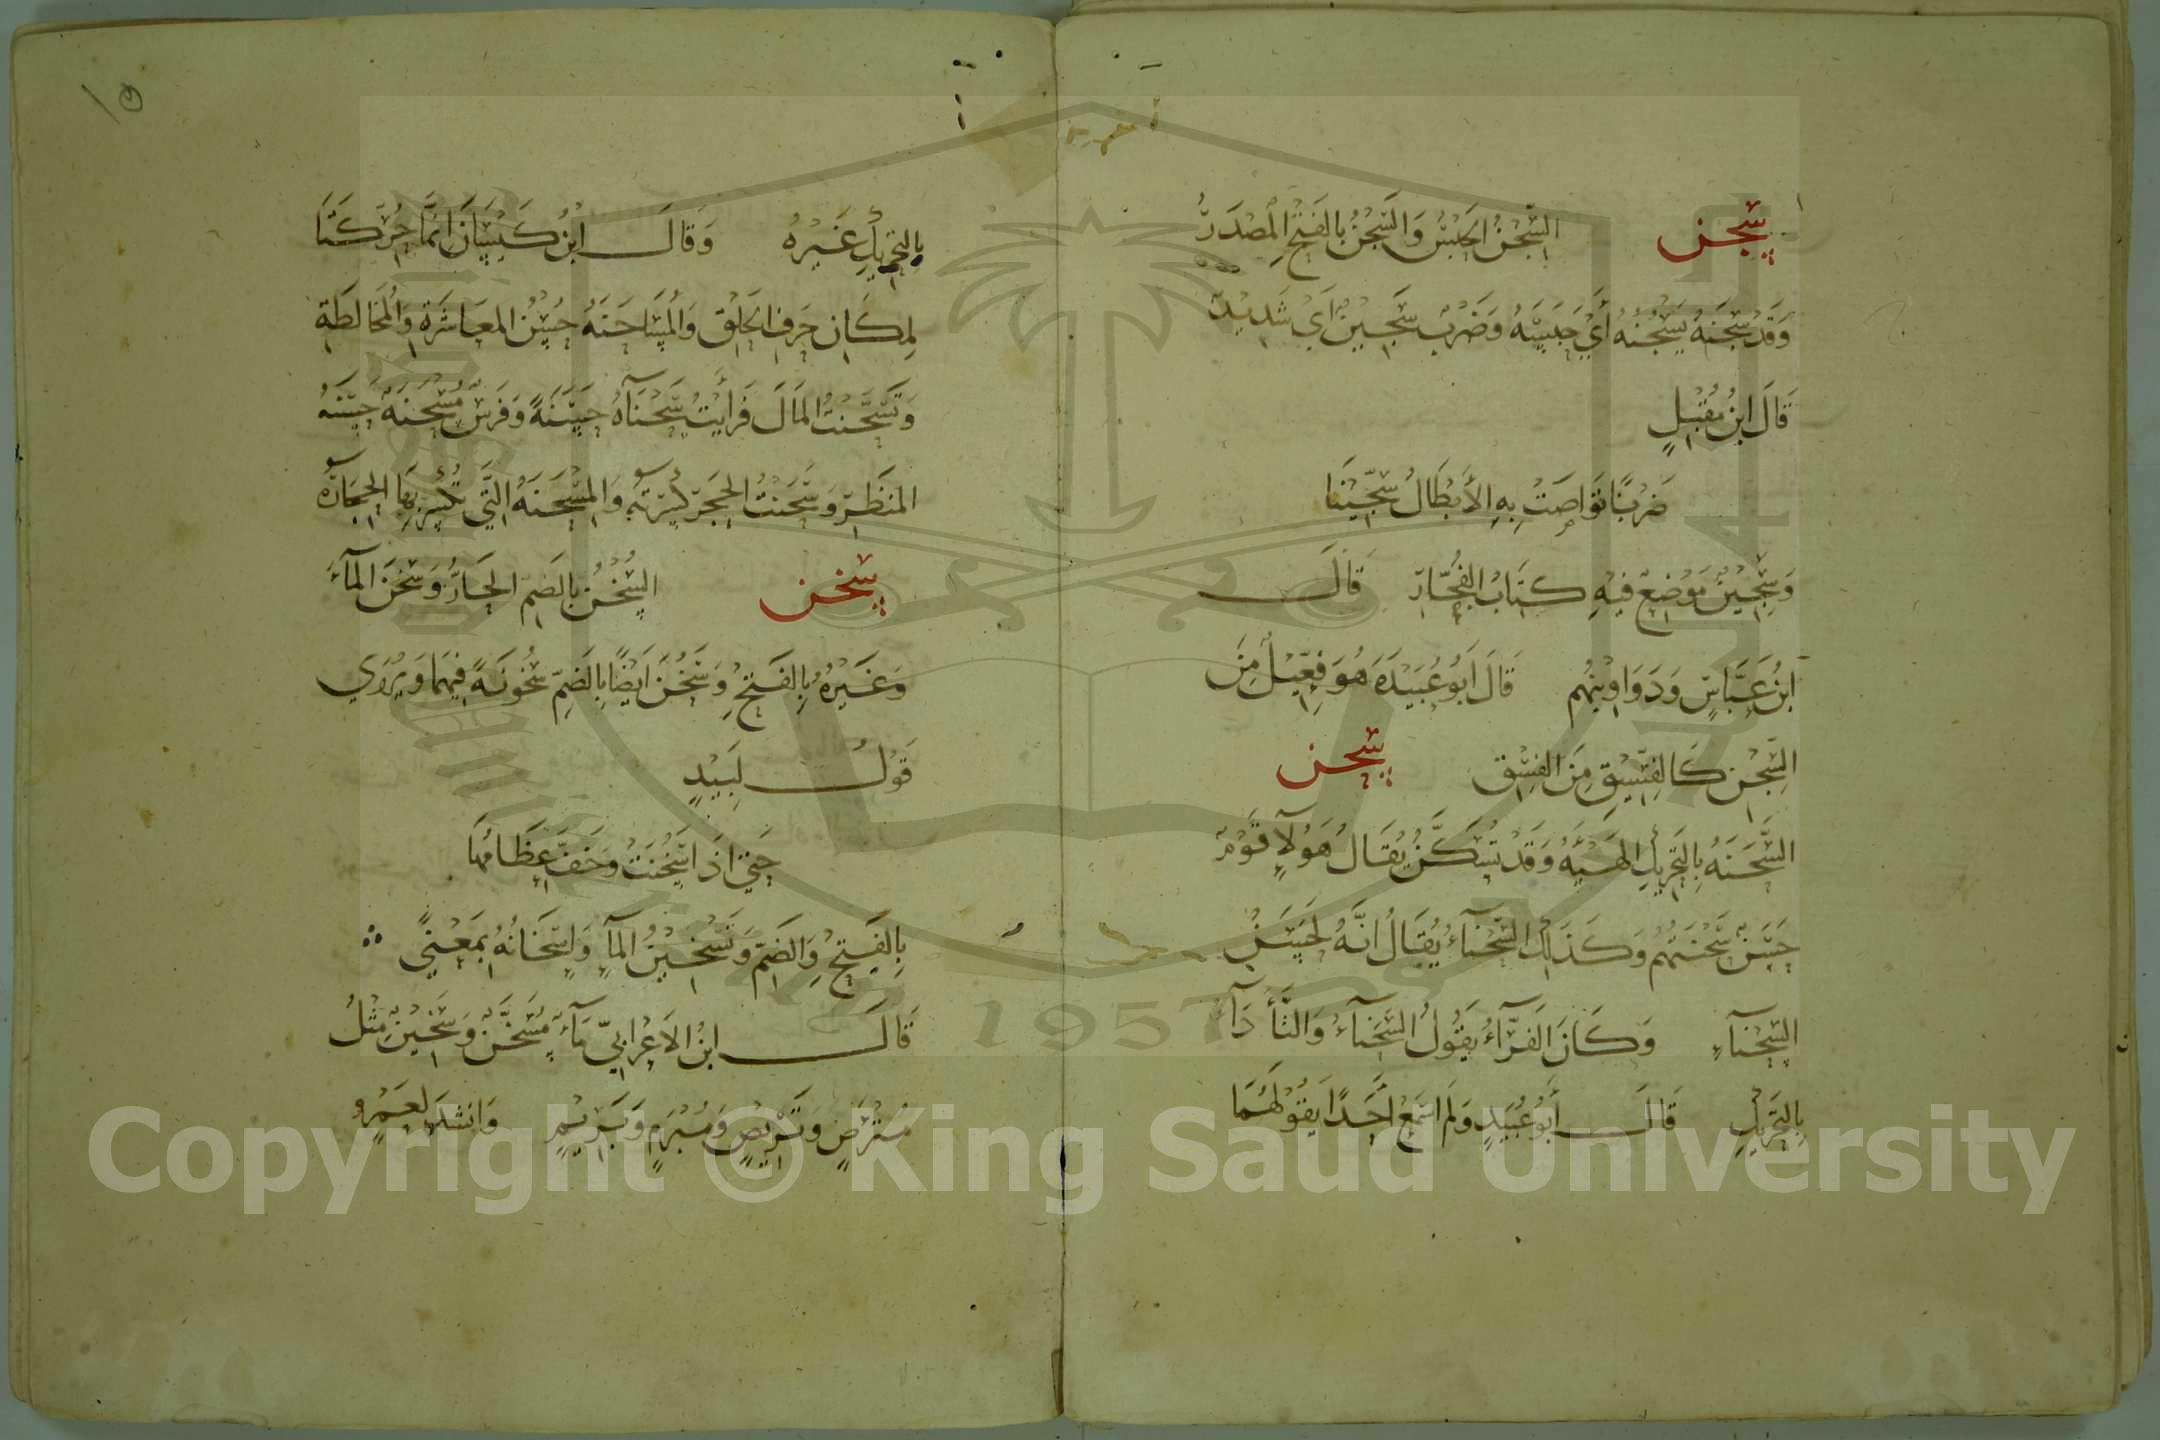 سجن السِّجْنُ الحَبْسُ وَالسَّجْنُ بِالفَتْحِ المَصْدَرُ
وَقَدْ سَجَنَهُ يَسْجُنُهُ أَيْ حَبَسَهُ وَضَرْبٌ سِجِّينٌ أَيْ شَدِيدٌ
قَالَ ابنُ مُقْبِلٍ
ضَرْبًا تَوَاصَتْ بِهِ الأَبْطَالُ سِجِّينَا
وَسِجِّينٌ مَوْضِعٌ فِيهِ كِتَابُ الفُجَّارِ قَالَ
ابنُ عَبَّاسٍ وَدَوَاوِينُهُم قَالَ أَبُو عُبَيْدَةَ هُوَ فِعِّيلٌ مِنَ
السِّجْنِ كَالفِسِّيقِ مِنَ الفِسْقِ سحن
السَّحَنَةُ بِالتَّحْرِيكِ الهَيْئَةُ وَقَدْ تُسَكَّنُ يُقَالُ هَؤُلَآءِ قَوْمٌ
حَسَنٌ سَحْنَتُهُمْ وَكَذَلِكَ السَّحْنَآءُ يُقَالُ إنَّهُ لَحَسَنُ
السَّحْنَآءِ وَكَانَ الفَرَّآءُ يَقُولُ السَّحَنَآءُ وَالثَّأَدَآءُ
بِالتَّحْرِيكِ قَالَ أَبُو عُبَيْدٍ وَلَمْ اسْمَعْ أَحَدًا يَقُولُهُمَا
١٥
بِالتَّحْرِيكِ غَيْرُهُ وَقَالَ ابْنُ كَيْسَانَ انَّمَا حُرِّكَتَا
لِمَكَانِ حَرْفِ الحَلْقِ وَالمُسَاحَنَةُ حُسْنُ المُعَاشَرَةِ وَالمُخَالَطَةِ
وَتَسَحَّنْتُ المَالَ فَرَأَيْتُ سَحْنَآهُ حَسَنَةً وَفَرَسٌ مُسْحَنَةٌ حَسَنَةُ
المَنْظَرِ وَسَحَنْتُ الحَجَرَ كَسَرْتُهُ وَالمِسْحَنَةُ الَّتِي تُكْسَرُ بِهَا الحِجَارَةُ
سخن السُّخْنُ بِالضَّمِّ الحَارُّ وَسَخَنَ المَآءُ
وَغَيْرُهُ بِالفَتْحِ وَسَخُنَ أَيْضًا بِالضَمِّ سُخُونَةً فِيهِمَا وَيُرْوَي
قَوْلُ لَبِيْدٍ
حَتَّي اذَا سَخُنَتْ وَخَفَّ عِظَامُهَا
بِالفَتْحِ وَالضَمِّ وَتَسْخِيْنُ المَآءِ وَإسْخَانُهُ بِمَعْنًي
قَالَ ابنُ الاَعْرَابيِّ مَآءٌ مُسَخَّنٌ وَسَخِينٌ مِثْلُ
مُتْرَصٍ وَتَرِيْصٍ وَمُبْرَمٍ وَبَرِيْمٍ وَانْشَدَ لِعَمْرِو